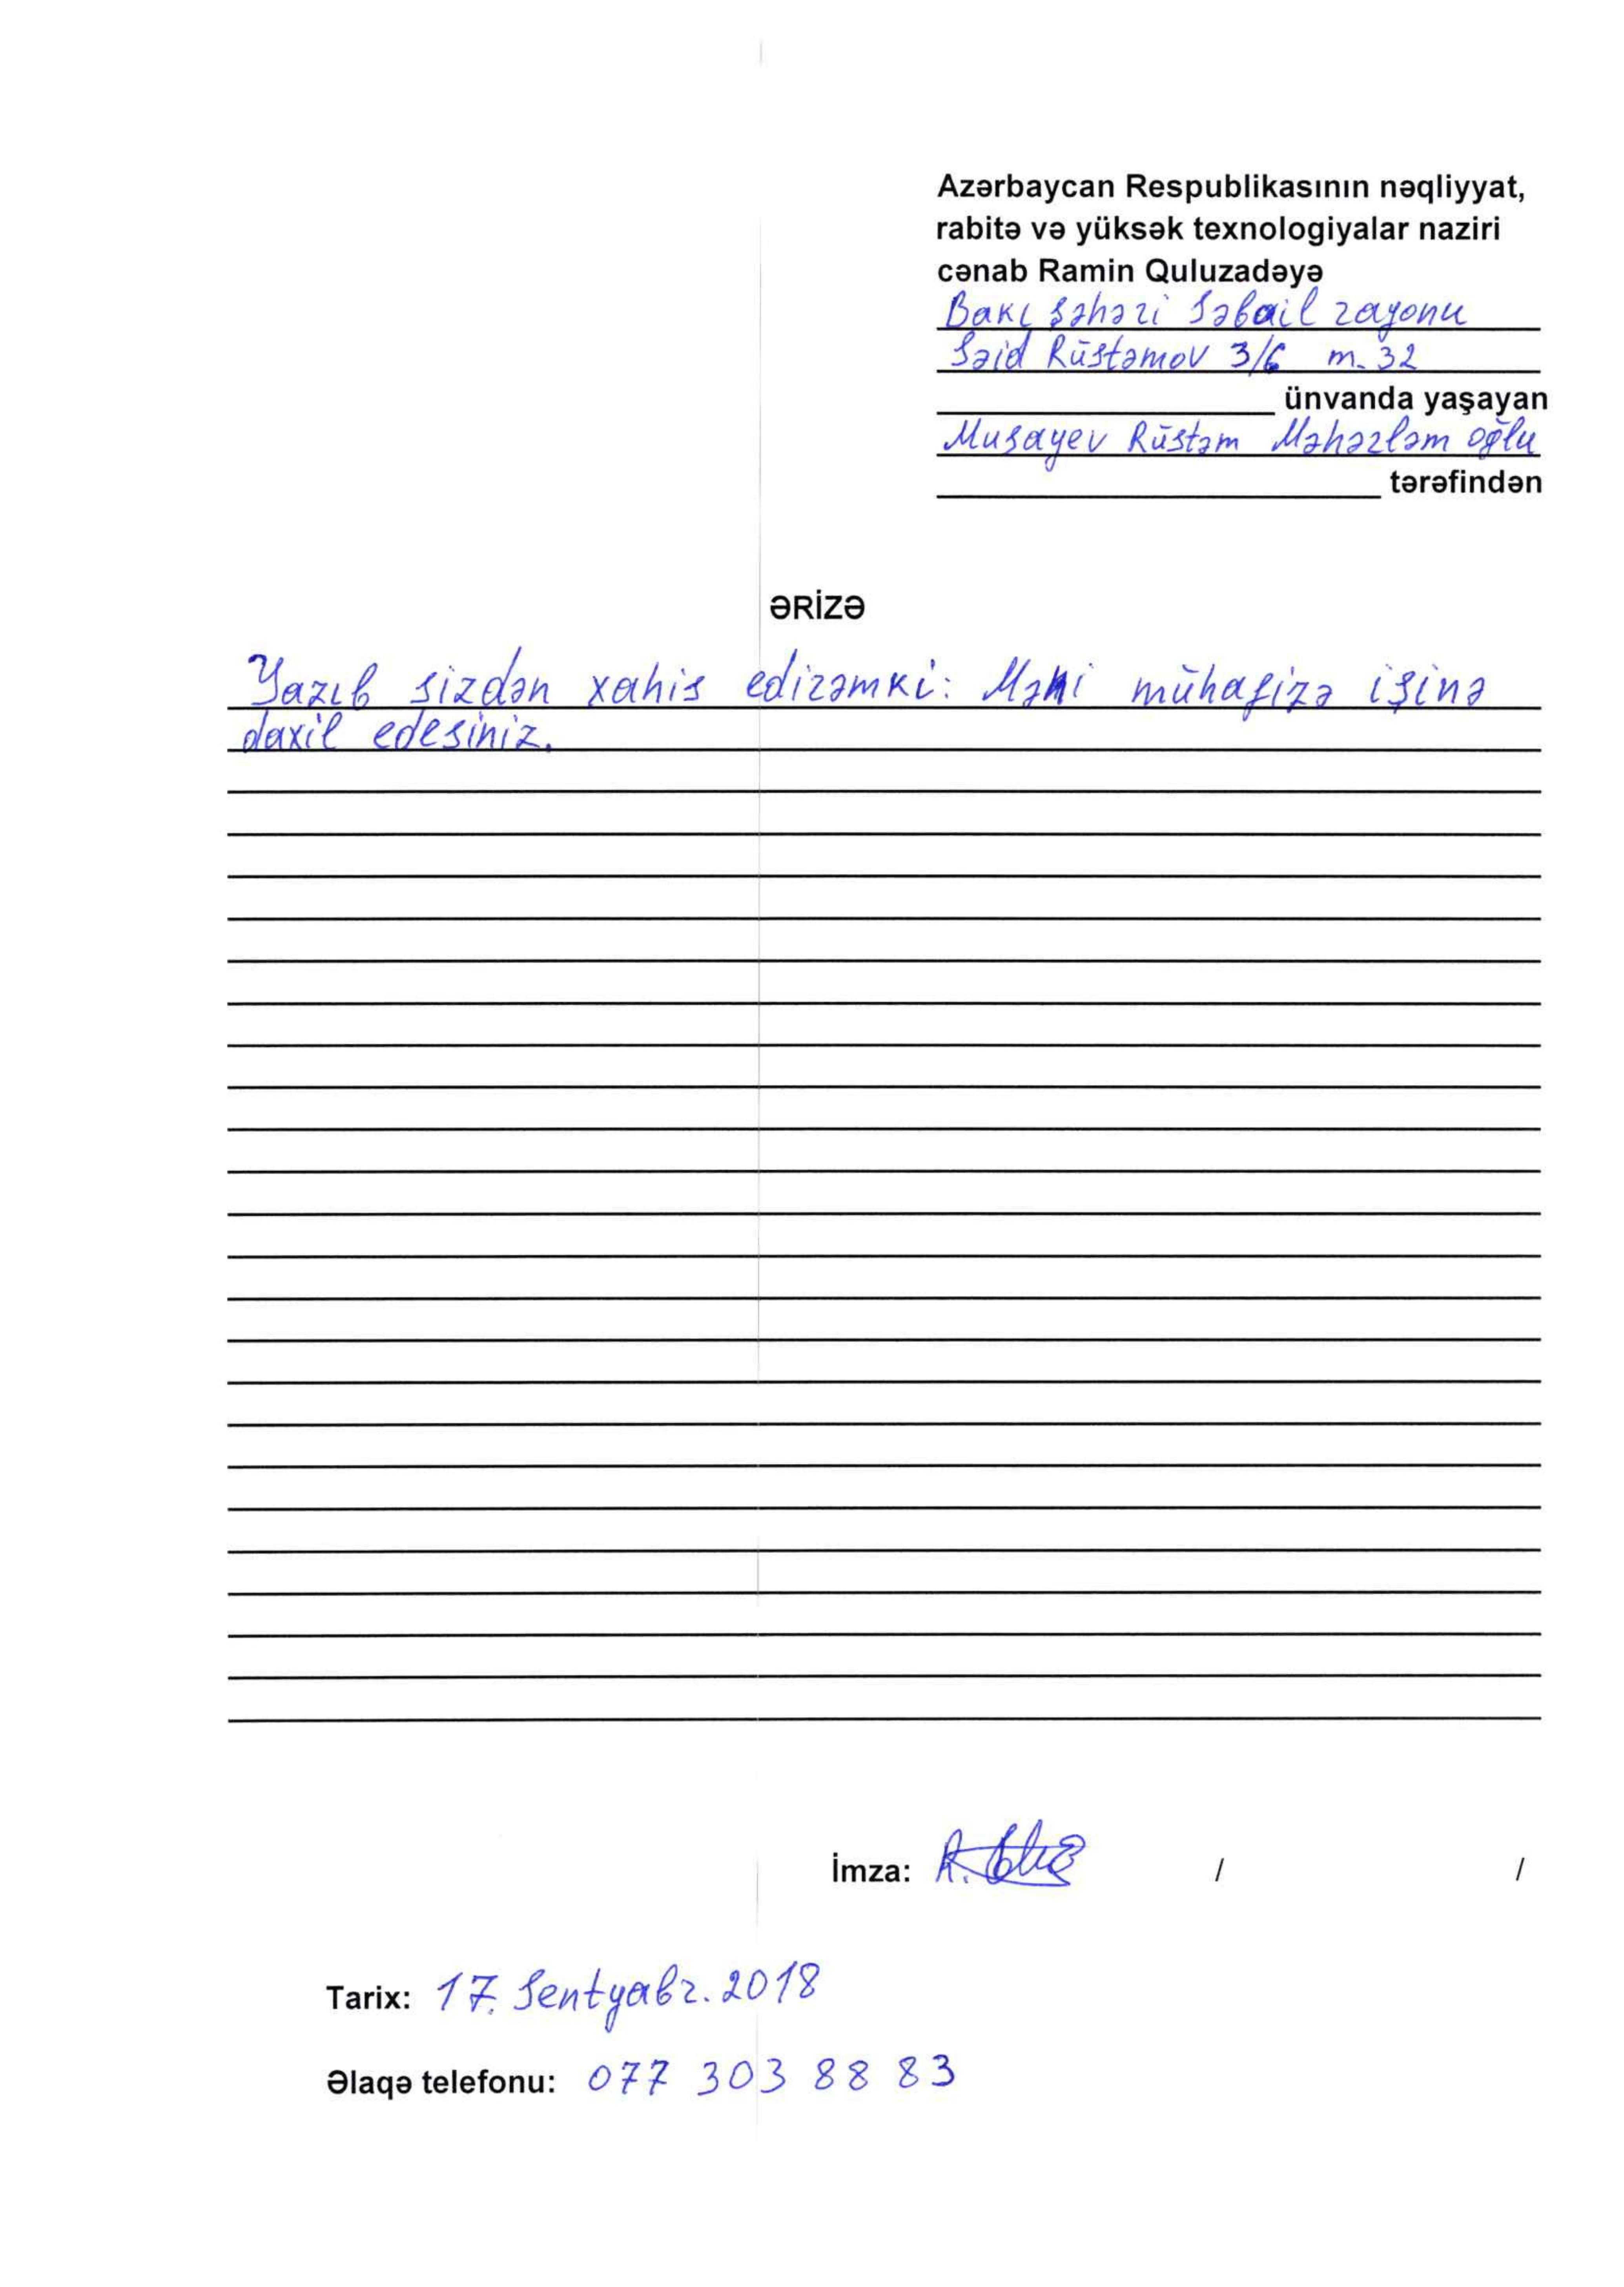 Azərbaycan Respublikasının nəqliyyat,
rabitə və yüksək texnologiyalar naziri
cənab Ramin Quluzadəyə
Bakı şəhəri Səbail rayonu
Səid Rüstəmov 3/6 m. 32
ünvanda yaşayan
Musayev Rüstəm Məhərləm oğlu
tərəfindən
ƏRİZƏ
Yazıb sizdən xahis edirəmki: Məni mühafizə işinə
daxil edesiniz.
İmza: / /
Tarix: 17. Sentyabr. 2018
Əlaqə telefonu: 077 303 88 83